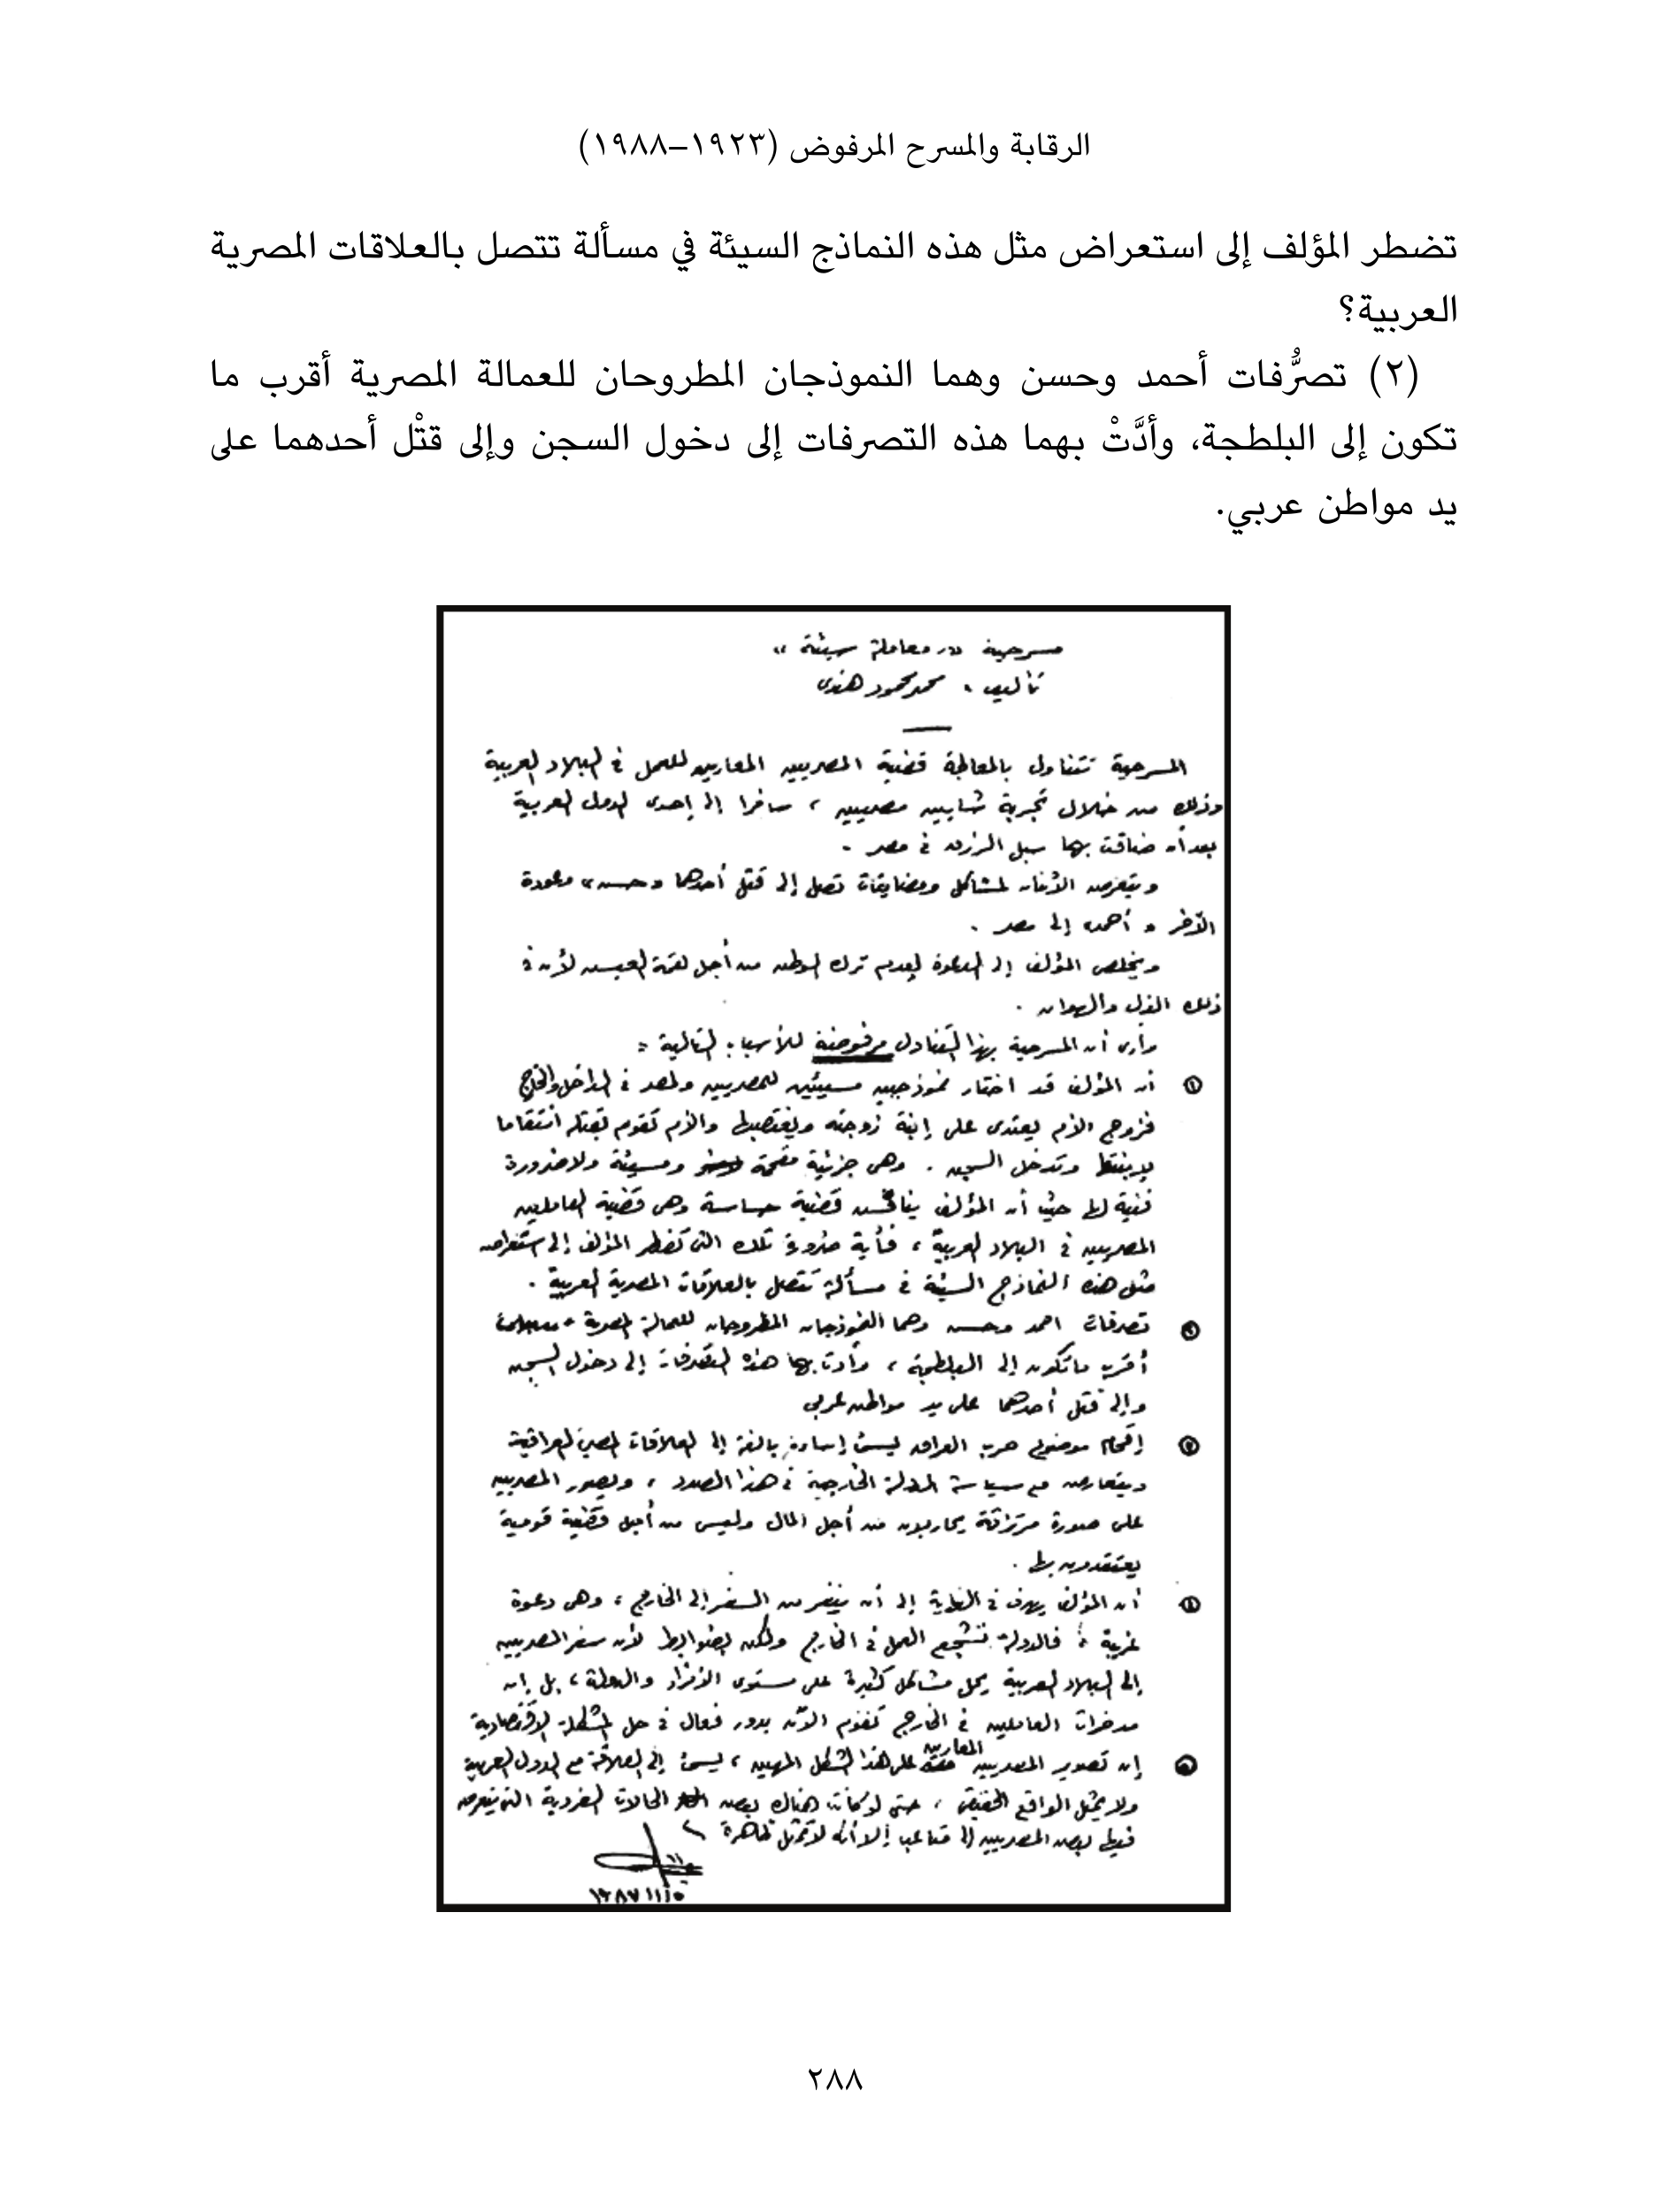 الرقابة والمسرح المرفوض (١٩٢٣–١٩٨٨)
تضطر المؤلف إلى استعراض مثل هذه النماذج السيئة في مسألة تتصل بالعلاقات المصرية
العربية؟
(٢) تصرُّفات أحمد وحسن وهما النموذجان المطروحان للعمالة المصرية أقرب ما
تكون إلى البلطجة، وأدَّتْ بهما هذه التصرفات إلى دخول السجن وإلى قتْل أحدهما على
يد مواطن عربي.
مسرحية «معاملة سيئة»
تأليف، محمد محمود هندى
المسرحية تتناول بالمعالجة قضية المصريين المعارين للعمل فى البلاد العربية
وذلك من خلال تجربة شابين مصريين، سافرا إلى إحدى الدول العربية
بعد أن ضاقت بهما سبل الرزق فى مصر .
ويتعرض الاثنان لمشاكل ومضايقات تصل إلى قتل أحدهما «حسن» وعودة
الآخر « أحمد» إلى مصر .
ويخلص المؤلف إلى الدعوة لعدم ترك الوطن من أجل لقمة العيش لأن فى
ذلك الذل والهوان .
وأرى أن المسرحية بهذا التناول مرفوضة للأسباب التالية :
① أن المؤلف قد اختار نموذجين مسيئين للمصريين ولمصر فى الداخل والخارج
فزوج الأم يعتدى على إبنة زوجته ويغتصبها والأم تقوم بقتله انتقاما
لإبنتها وتدخل السجن . وهى جزئية مقحمة ومسيئة ولا ضرورة
فنية لها حيث أن المؤلف يناقش قضية حساسة وهى قضية العاملين
المصريين فى البلاد العربية، فأية ضرورة تلك التى تضطر المؤلف إلى استعراض
مثل هذه النماذج السيئة فى مسألة تتصل بالعلاقات المصرية العربية .
② تصرفات احمد وحسن وهما النموذجان المطروحان للعمالة المصرية
أقرب ما تكون إلى البلطجة، وأدت بهما هذه التصرفات إلى دخول السجن
وإلى قتل أحدهما على يد مواطن عربى
③ إقحام موضوع حرب العراق ليسئ إساءة بالغة إلى العلاقات المصرية العراقية
ويتعارض مع سياسة الدولة الخارجية فى هذا الصدد، ويصور المصريين
على صورة مرتزقة يحاربون من أجل المال وليس من أجل قضية قومية
يعتقدون بها .
④ أن المؤلف يهدف فى النهاية إلى أن ينفر من السفر إلى الخارج، وهى دعوة
غريبة، فالدولة تشجع العمل فى الخارج ولكن بضوابط لأن سفر المصريين
إلى البلاد العربية يحل مشاكل كثيرة على مستوى الأفراد والدولة، بل إن
مدخرات العاملين فى الخارج تقوم الآن بدور فعال فى حل المشكلة الاقتصادية
⑤ إن تصوير المصريين المعارين على هذا الشكل المهين، ليسئ إلى العلاقة مع الدول العربية
ولا يمثل الواقع الحقيقى، حتى لو كانت هناك بعض الحالات الفردية التى يتعرض
فيها بعض المصريين إلى متاعب إلا أنها لا تمثل ظاهرة
١٩٨٧/١/٥
٢٨٨